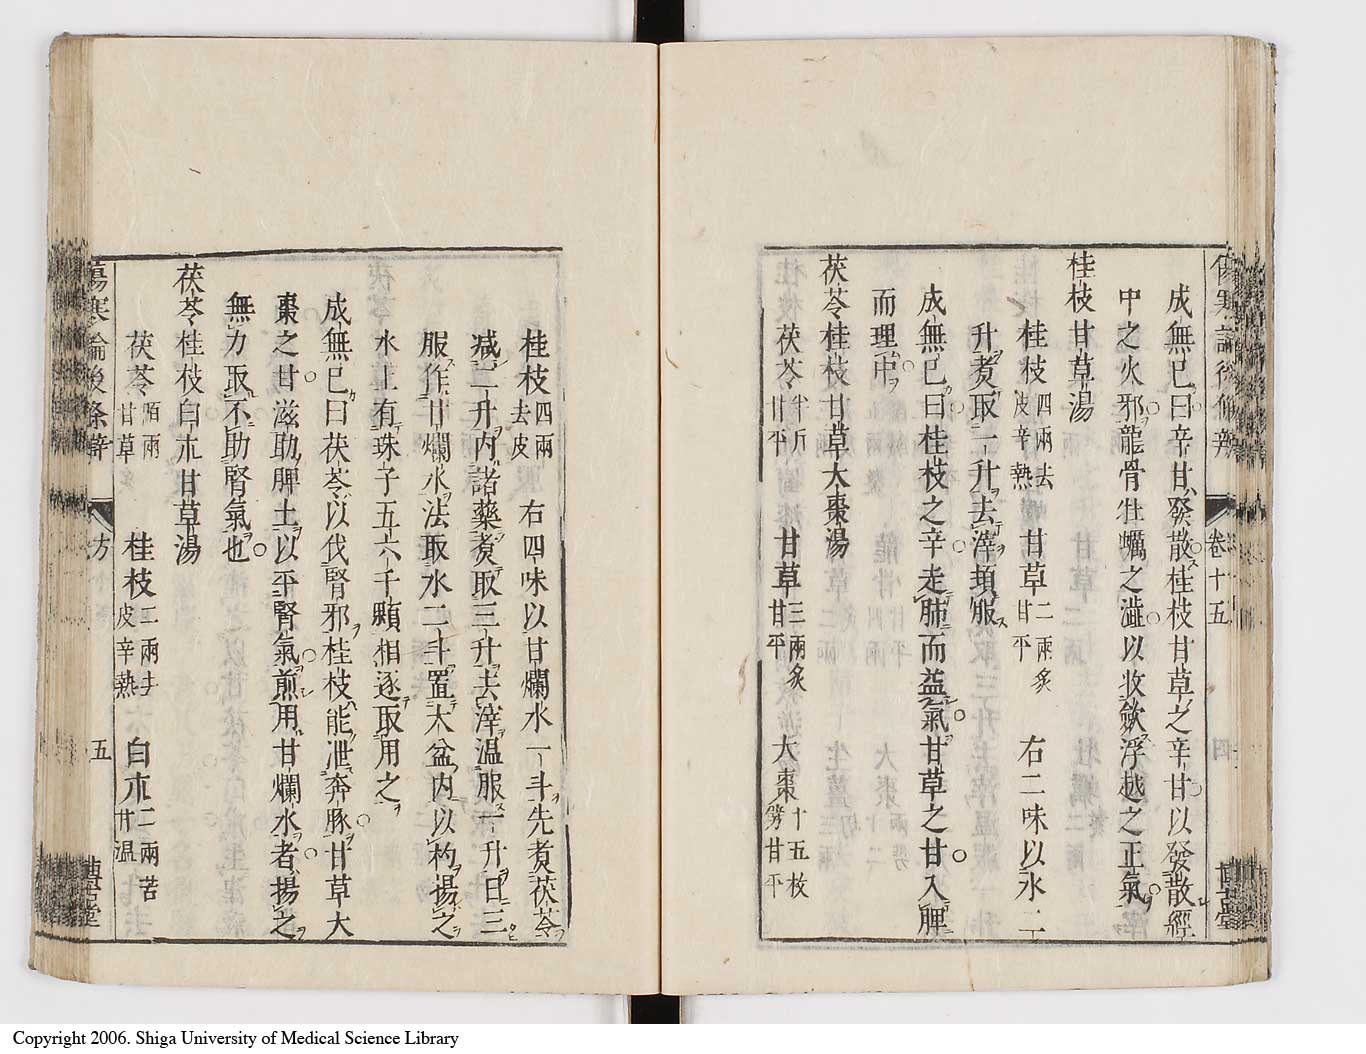 傷寒論後條辨 卷十五 四 博古堂
成無已曰辛甘發散桂枝甘草之辛甘以發散經
中之火邪龍骨牡蠣之澁以收斂浮越之正氣
桂枝甘草湯
桂枝四兩去皮辛熱 甘草二兩炙甘平 右二味以水二
升煑取一升去滓頓服
成無已曰桂枝之辛走肺而益氣甘草之甘入脾
而理中
茯苓桂枝甘草大棗湯
茯苓半斤甘平 甘草三兩炙甘平 大棗十五枚劈甘平
桂枝四兩去皮 右四味以甘爛水一斗先煑茯苓
減二升內諸藥煑取三升去滓温服一升日三
服作甘爛水法取水二斗置大盆內以杓揚之
水上有珠子五六千顆相逐取用之
成無已曰茯苓以伐腎邪桂枝能泄奔豚甘草大
棗之甘滋助脾土以平腎氣煎用甘爛水者揚之
無力取不助腎氣也
茯苓桂枝白朮甘草湯
茯苓 桂枝二兩去皮辛熱 白朮二兩苦甘温
傷寒論後條辨 方 五 博古堂
Copyright 2006. Shiga University of Medical Science Library